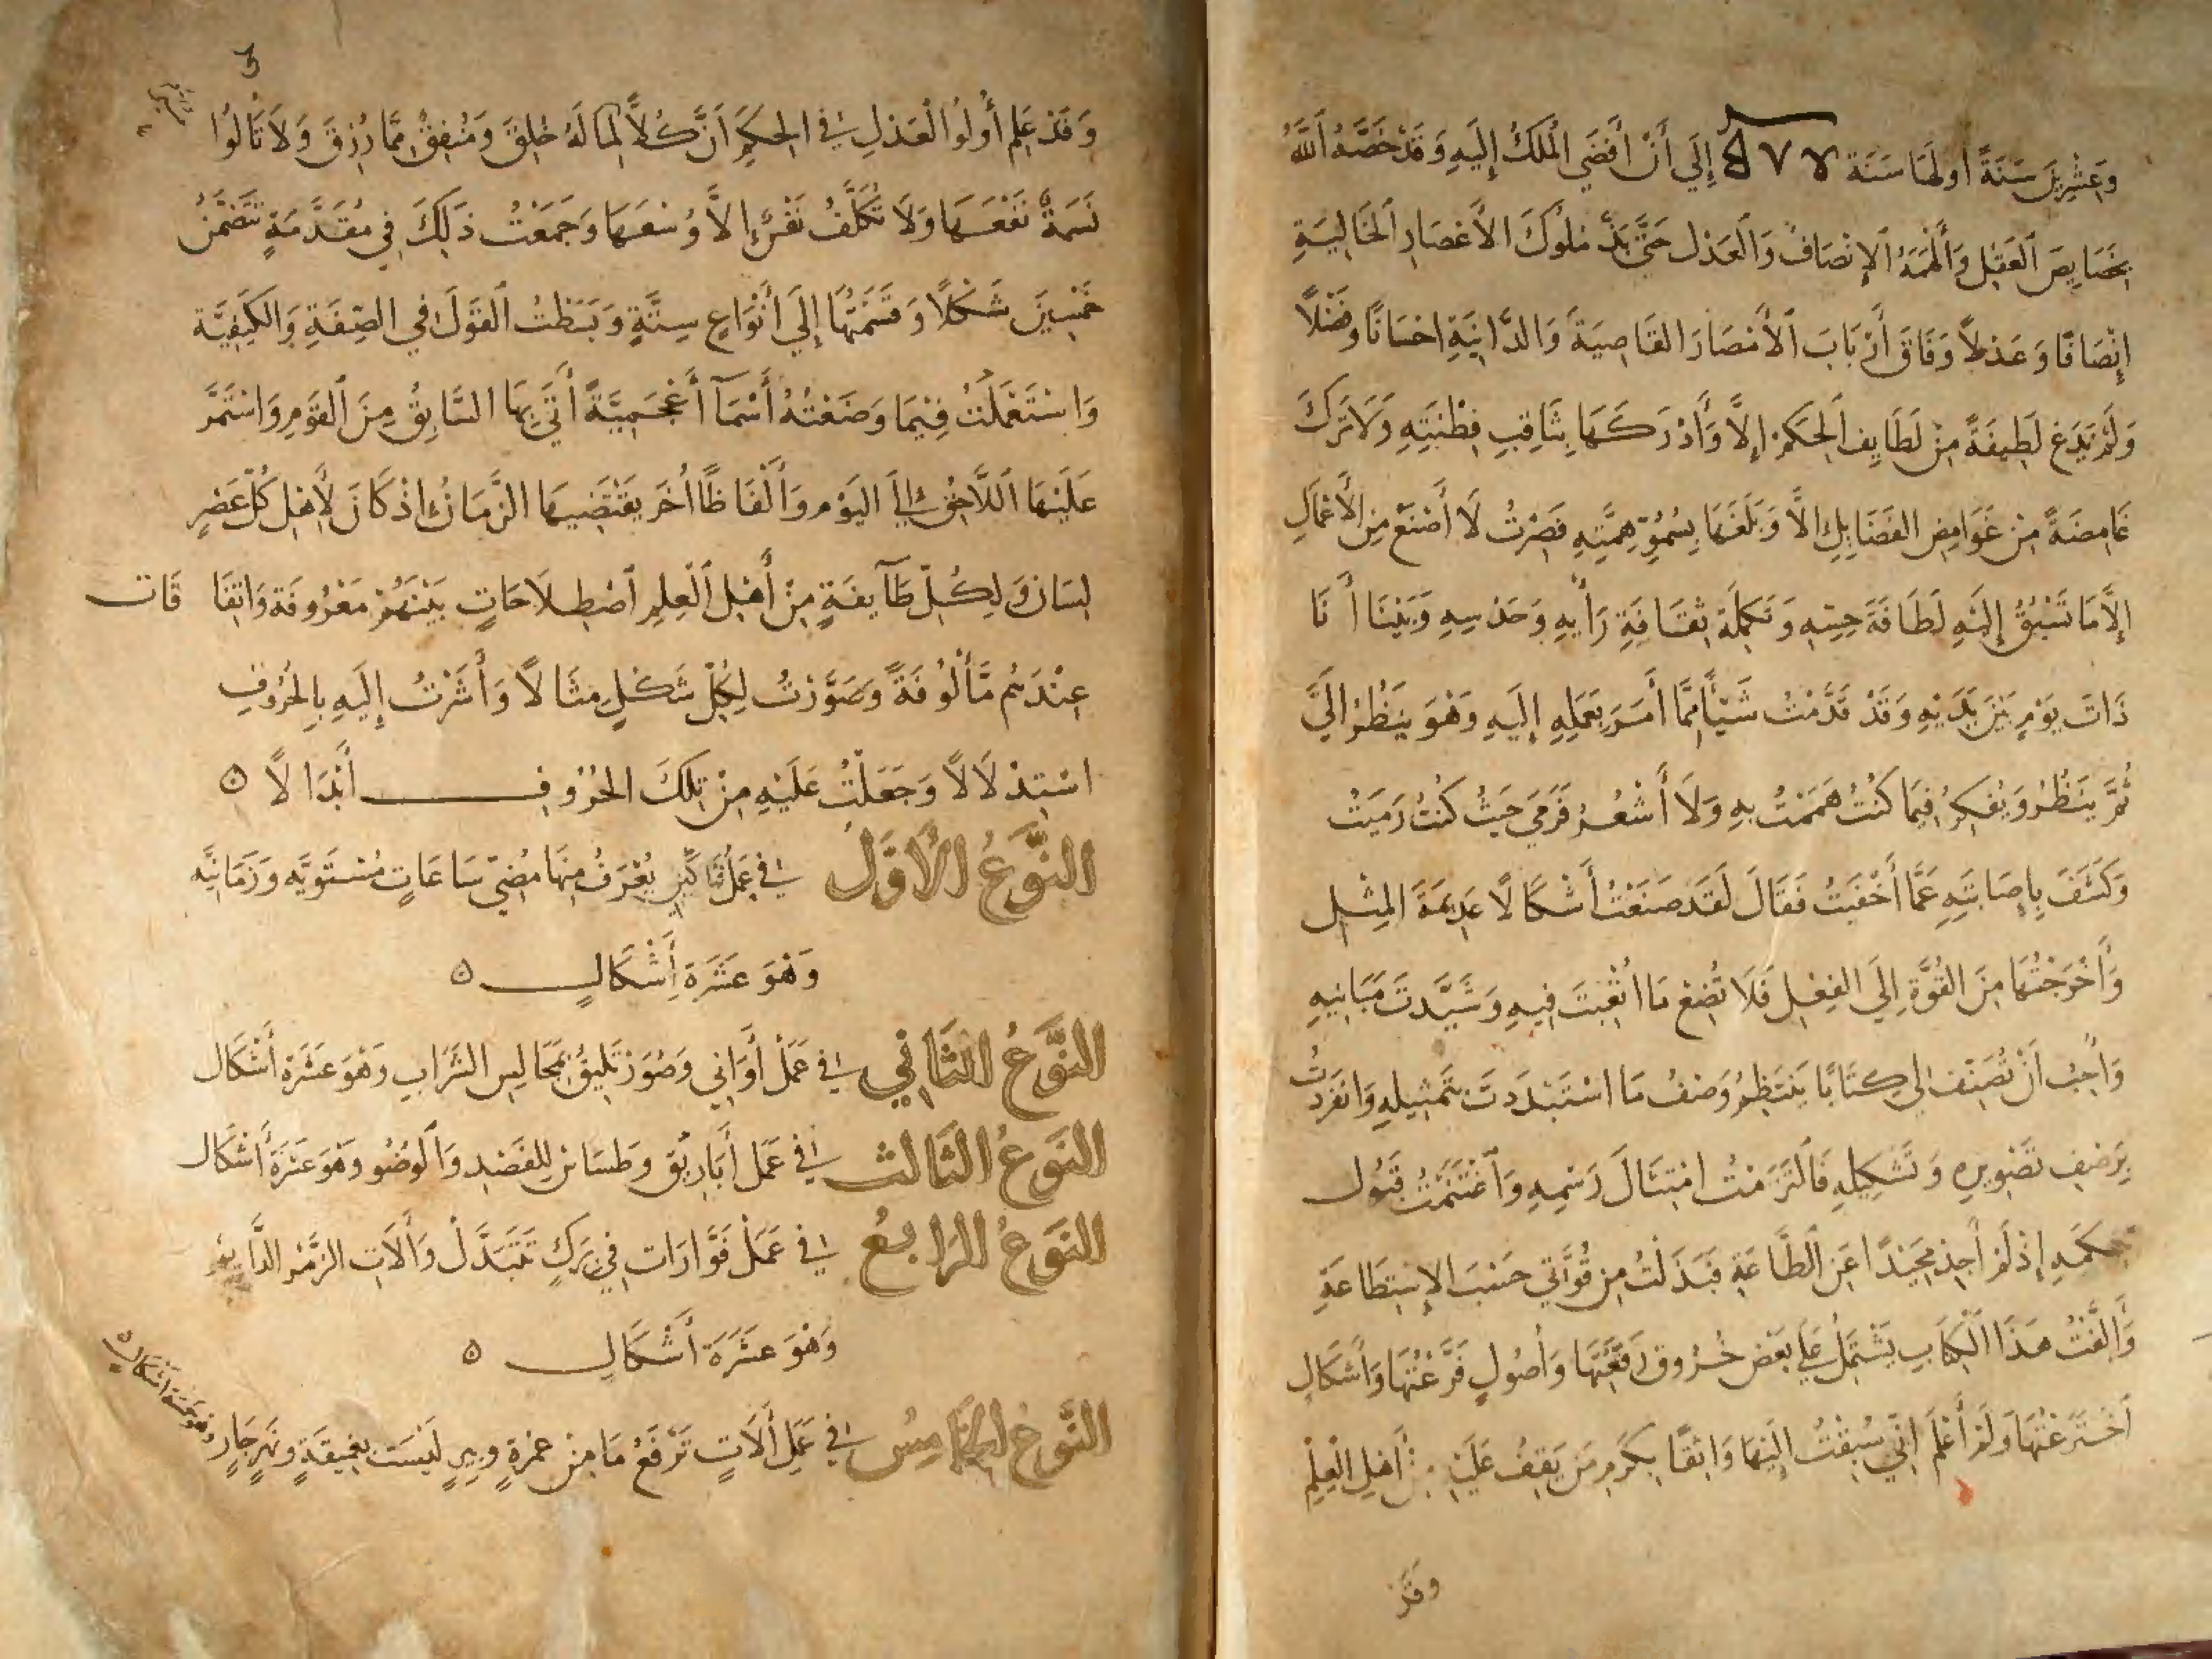 وَعِشْرِينَ سَنَةً اولهَا سَنَة إِلَي أَنْ أَفضَي اَلمُلكُ إِلَيهِ وَقَدْ خَصَّهُ اَللَّهُ
بِخَصَايِصَ اَلعَقْلِ وَأَلْهَمَهُ اَلإِنْصَافَ وَاَلعَدْل حَتَّي بَذَّ مُلُوكَ الأَعْصَارِ اَلخَالِيَةِ
إِنْصَافًا وَعَدْلاً وَفَاقَ أَرْبَابَ اَلأَمْصَارِ القَاصِيَةِ وَالدَّانِيَةِ احْسَانًا وفَضْلاً
وَلَمْ يَدَعْ لَطِيفَةً مِنْ لَطَايِفِ اَلحِكَمْ إلاَّ وَأَدْرَكَهَا بِثَاقِبِ فِطْنَتِهِ وَلاَ تَرَكَ
غَامِضَةً مِنْ غَوَامِضِ الفَضَايِلِ الاَّ وَبَلَغَهَا بِسُمُوِّ هِمَّتِهِ فَصِرْتُ لاَ أَصْنَعُ مِنَ الأَعْمَالِ
إِلاَّ مَا تَسْبِقُ إِلَيْهِ لَطَافَةُ حِسِّهِ وَتَكْمِلَة بثقَافَةِ رَأْيِهِ وَحَدْسِهِ وَبَيْنَا أَنَا
ذَات يَوْمٍ بَيْنَ يَدَيْهِ وَقَدْ قَدَّمْتُ شَيْأً مِمَّا أَمَرَ بِعَمَلِهِ إِلَيهِ وَهْوَ يَنْظُرُ الَيَّ
ثُمَّ يَنْظُرُ وَيُفَكِّرُ فِيمَا كُنْتُ هَمَمْتُ بِهِ وَلاَ أَشْعُرُ فَرَمَي حَيْثُ كُنْتُ رَمَيْتُ
وَكَشَفَ بِإِصَابَتِهِ عَمَّا أَخْفَيْتُ فَقَالَ لَقَد صَنَعْتَ أَشْكَالاً عَدِيمَةَ المِثْلِ
وَأَخْرَجْتَهَا مِنَ القُوَّةِ إِلَي الفِعْلِ فَلاَ تُضِعْ مَا أَتْعَبْتَ فِيهِ وَشَيَّدتَ مَبَانِيهِ
وَأُحِبُّ أَنْ تُصَنِّفَ لِي كِتَابًا يَنْتَظِمُ وَصْفُ مَا اسْتَبْدَدتَ بِتَمْثِيلِهِ وَانفَرَدتَ
بِرَصْفِ تَصْوِيرِهِ وَتَشْكِيلِهِ فَاَلتَزَمْتُ امْتِثَالَ رَسْمِهِ وَاَغْتَنَمْتُ قَبُول
حكمهِ إِذْ لَمْ أَجِدْ مَحِيدًا عَنِ اَلطَّاعَةِ فَبَذَلْتُ مِن قُوَّتِي حَسْبَ الإِسْتِطَاعَةِ
وَأَلَّفْتُ هَذَا اَلكِتَابِ يَشْتَمِلُ عَلَي بَعْض خُرُوقٍ رَقَعْتُهَا وَأُصُولٍ فَرَّعْتُهَا وَأَشكَالٍ
اَخْتَرَعْتُهَا وَلَمْ أَعْلَمَ انِّي سُبِقْتُ إِلَيْهَا وَاثِقًا بِكَرَمِ مَن يَقِفُ عَلَيْهِ مِنْ أَهْلِ العِلْمِ
وَقَدْ
وَقَدْ عَلِمَ أُولُوا العَدْلِ فِي الحِكَمِ أَنَّ كُلاًّ لِمَا لَهُ خُلِقَ وَمُنْفِقٌ مِمَّا رُزِقَ وَلاَ تَأْلُوا
نَسَمَةٌ نَفْعَهَا وَلاَ تُكَلَّفُ نَفْسٌ إِلاَّ وُسْعَهَا وَجَمَعْتُ ذَلِكَ فِي مُقَدَّمَةٍ تَتَضَمَّنُ
خَمْسِينَ شَكْلاً وَقَسَّمْتُهَا إِلَي أَنْوَاعٍ سِتَّةٍ وَبَسَطتُ اَلقَوْلَ فِي الصِّفَةِ وَالكَيْفِيَّة
وَاسْتَعْمَلْتُ فِيْمَا وَضَعْتُهُ أَسْمَآ أَعْجَمِيَّةً أَتَي بِهَا السَّابِقُ مِنَ اَلقَوْمِ وَاسْتَمَرَّ
عَلَيْهَا اَللاَّحِقُ إِلَي اليَوْم وَأَلْفَاظًا أُخَر يَقْتَضِيهَا الزَّمَانُ اذْ كَانَ لأَهْلِ كُلّ عَصْرٍ
لِسَان وَلِكُلِّ طَآيفَةٍ مِنْ أَهْلِ اَلْعِلِمِ اَصْطِلاَحَاتٍ بَيْنَهُمْ مَعْرُوفَة وَاتفَا قَات
عِنْدَهُم مَّأْلُوفَةً وَصَوَّرْتُ لِكُلّ شَكْلٍ مِثَالاً وَأَشَرْتُ إِلَيهِ بِالحُرُوفِ
اسْتِدْلاَلاً وَجَعَلْتُ عَلَيْهِ مِنْ تِلكَ الحُرُوفِ أَبْدَالاً ه
النَّوعُ الأَوَّل فِي عَمَلِ فَنَاكِينَ يُعْرَفُ مِنْهَا مُضِيّ سَاعَاتٍ مُسْتَوِيَّه وَزَمَانِيَّه
وَهْوَ عَشَرَةَ أَشْكَالٍ ه
النَّوعُ الثَاني فِي عَمَلْ أَوَانِي وَصُوَرْ تَلِيقُ بِمَجَالِسِ الشَّرَابِ وَهْوَ عَشَرَة أَشْكَال
النَوعُ الثَالث فِي عَمَل أَبَارِيْق وَطسَاس لِلفَصْدِ وَاَلوُضُو وَهْوَ عَشَرَةَ أَشْكَال
النَوعُ الرَابعُ فِي عَمَلْ فَوَّارَات فِي بِرَكٍ تَتَبَدَّلْ وَأَلاَتِ الزَّمْرِ الدَّايمِ
وَهْوَ عَشَرَةَ أَشْكَالٍ ه
النَّوعُ الخَامِسُ فِي عَمَلِ أَلاَتٍ تَرْفَعُ مَا مِنْ غمْرةٍ وبيرٍ لَيْسَت بِعَمِيقَةٍ ونَهرٍ جَارٍ وَهْوَ خَمْسَة أَشْكَال ه